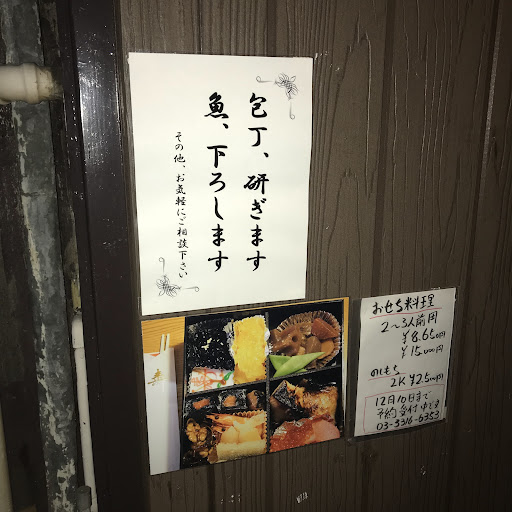 包丁、研ぎます
魚、下ろします
その他、お気軽にご相談下さい
寿
おせち料理
2〜3人前用
¥8,650円
¥15,000円
のしもち
2K ¥2500円
12月10日まで
予約受付中です
03-5316-6353